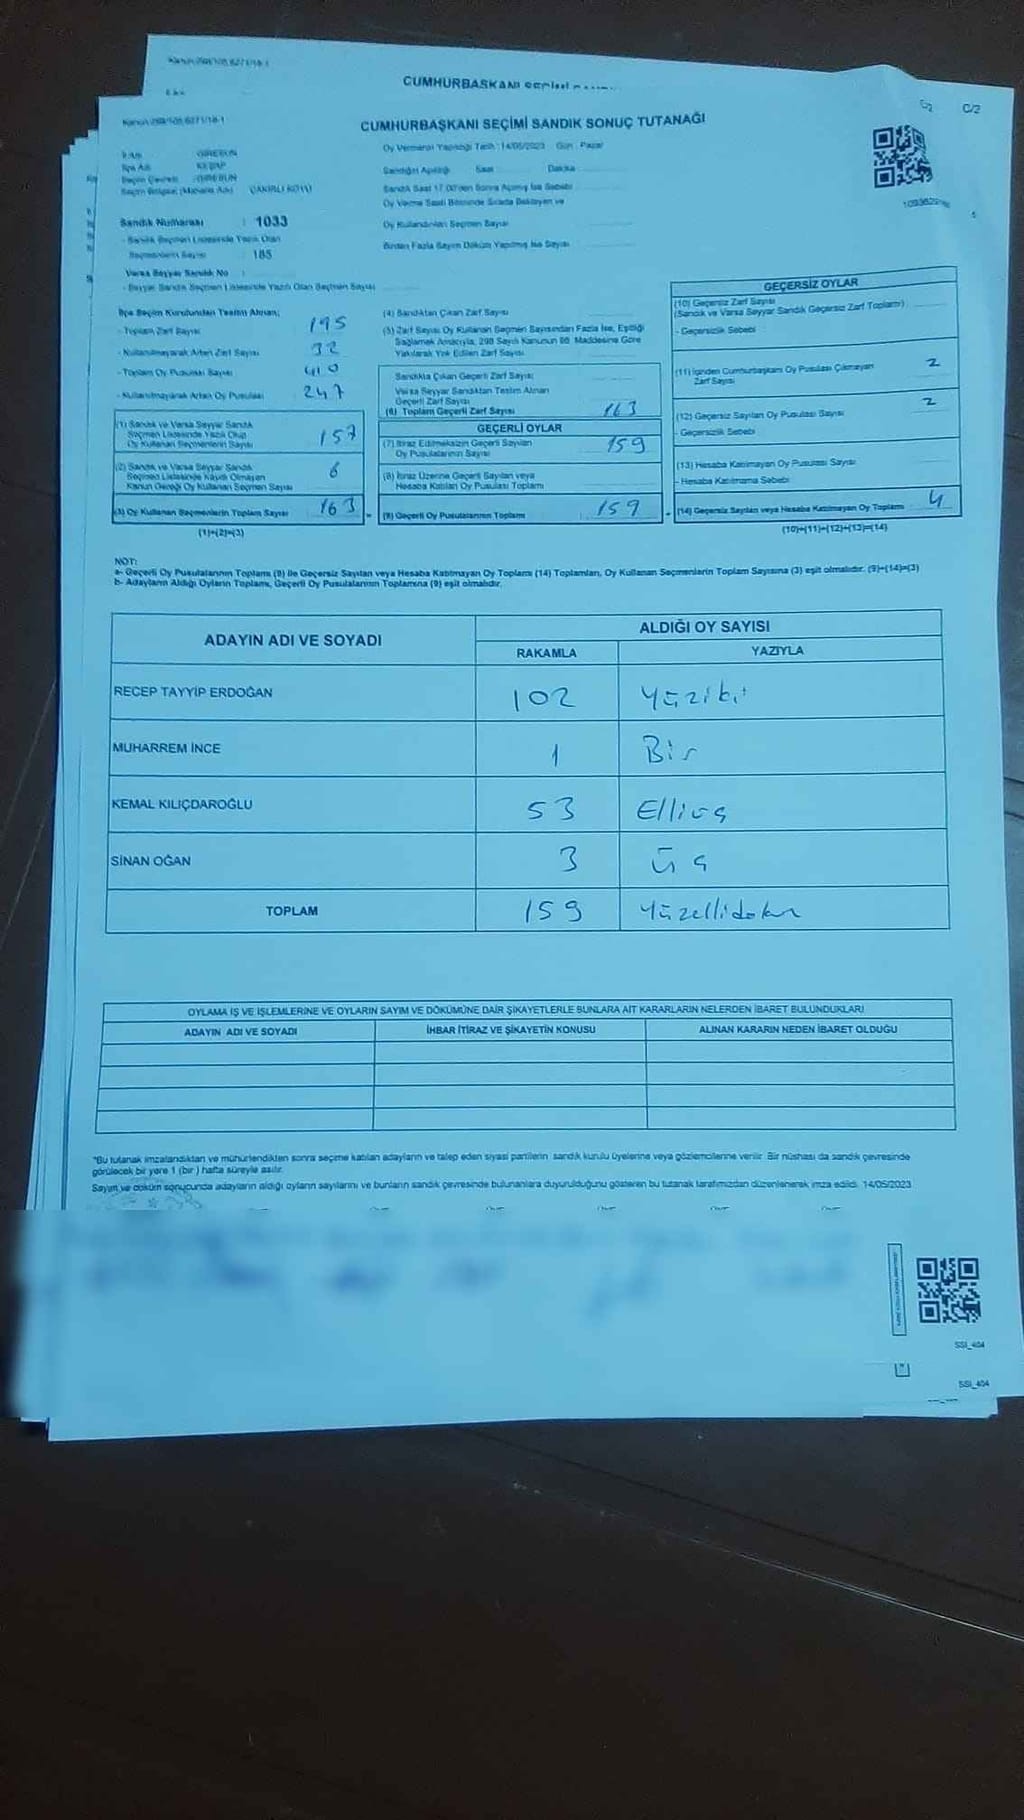 CUMHURBAŞKANI SEÇİMİ
C/2
CUMHURBAŞKANI SEÇİMİ SANDIK SONUÇ TUTANAĞI
İl Adı : GİRESUN
İlçe Adı : KEŞAP
Seçim Çevresi : GİRESUN
Oy Vermenin Yapıldığı Tarih : 14/05/2023 Gün : Pazar
Sandığın Açıldığı Saat Dakika
Sandık Saat 17.00'den Sonra Açılmış İse Sebebi
Oy Verme Saati Bitiminde Sırada Bekleyen ve
Oy Kullandırılan Seçmen Sayısı
Birden Fazla Sayım Döküm Yapılmış İse Sayısı
Sandık Numarası : 1033
- Sandık Seçmen Listesinde Yazılı Olan
Seçmenlerin Sayısı : 185
Varsa Seyyar Sandık No :
- Seyyar Sandık Seçmen Listesinde Yazılı Olan Seçmen Sayısı
İlçe Seçim Kurulundan Teslim Alınan;
- Toplam Zarf Sayısı 195
- Kullanılmayarak Artan Zarf Sayısı 32
- Toplam Oy Pusulası Sayısı 410
- Kullanılmayarak Artan Oy Pusulası 247
(1) Sandık ve Varsa Seyyar Sandık
Seçmen Listesinde Yazılı Olup
Oy Kullanan Seçmenlerin Sayısı 157
(2) Sandık ve Varsa Seyyar Sandık
Seçmen Listesinde Kaydı Olmayan
Kanun Gereği Oy Kullanan Seçmen Sayısı 6
(3) Oy Kullanan Seçmenlerin Toplam Sayısı 163
(1)+(2)=(3)
(4) Sandıktan Çıkan Zarf Sayısı
(5) Zarf Sayısı Oy Kullanan Seçmen Sayısından Fazla İse, Eşitliği
Sağlamak Amacıyla, 298 Sayılı Kanunun 98. Maddesine Göre
Yakılarak Yok Edilen Zarf Sayısı
Sandıkta Çıkan Geçerli Zarf Sayısı
Varsa Seyyar Sandıktan Teslim Alınan
Geçerli Zarf Sayısı
(6) Toplam Geçerli Zarf Sayısı 163
GEÇERLİ OYLAR
(7) İtiraz Edilmeksizin Geçerli Sayılan
Oy Pusulalarının Sayısı 159
(8) İtiraz Üzerine Geçerli Sayılan veya
Hesaba Katılan Oy Pusulası Toplamı
(9) Geçerli Oy Pusulalarının Toplamı 159
GEÇERSİZ OYLAR
(10) Geçersiz Zarf Sayısı
(Sandık ve Varsa Seyyar Sandık Geçersiz Zarf Toplamı)
- Geçersizlik Sebebi
(11) İçinden Cumhurbaşkanı Oy Pusulası Çıkmayan
Zarf Sayısı 2
(12) Geçersiz Sayılan Oy Pusulası Sayısı 2
- Geçersizlik Sebebi
(13) Hesaba Katılmayan Oy Pusulası Sayısı
- Hesaba Katılmama Sebebi
(14) Geçersiz Sayılan veya Hesaba Katılmayan Oy Toplamı 4
(10)+(11)+(12)+(13)=(14)
NOT:
a- Geçerli Oy Pusulalarının Toplamı (9) ile Geçersiz Sayılan veya Hesaba Katılmayan Oy Toplamı (14) Toplamları, Oy Kullanan Seçmenlerin Toplam Sayısına (3) eşit olmalıdır. (9)+(14)=(3)
b- Adayların Aldığı Oyların Toplamı, Geçerli Oy Pusulalarının Toplamına (9) eşit olmalıdır.
ADAYIN ADI VE SOYADI ALDIĞI OY SAYISI
RAKAMLA YAZIYLA
RECEP TAYYİP ERDOĞAN 102 Yüziki
MUHARREM İNCE 1 Bir
KEMAL KILIÇDAROĞLU 53 Elliüç
SİNAN OĞAN 3 üç
TOPLAM 159 Yüzellidokuz
OYLAMA İŞ VE İŞLEMLERİNE VE OYLARIN SAYIM VE DÖKÜMÜNE DAİR ŞİKAYETLERLE BUNLARA AİT KARARLARIN NELERDEN İBARET BULUNDUKLARI
ADAYIN ADI VE SOYADI İHBAR İTİRAZ VE ŞİKAYETİN KONUSU ALINAN KARARIN NEDEN İBARET OLDUĞU
*Bu tutanak imzalandıktan ve mühürlendikten sonra seçime katılan adayların ve talep eden siyasi partilerin sandık kurulu üyelerine veya gözlemcilerine verilir. Bir nüshası da sandık çevresinde
görülecek bir yere 1 (bir ) hafta süreyle asılır.
Sayım ve döküm sonucunda adayların aldığı oyların sayılarını ve bunların sandık çevresinde bulunanlara duyurulduğunu gösteren bu tutanak tarafımızdan düzenlenerek imza edildi. 14/05/2023
SSI_404
SSI_404